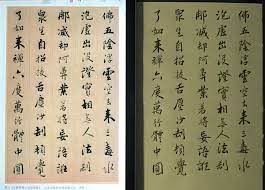 佛五陰浮雲空去來三毒水
泡虛出沒證實相無人法剎
那滅却阿鼻業若將妄語誑
眾生自招拔舌塵沙劫頓覺
了如來禪六度萬行體中圓
佛五陰浮雲空去來三毒水
泡虛出沒證實相無人法剎
那滅却阿鼻業若將妄語誑
眾生自招拔舌塵沙劫頓覺
了如來禪六度萬行體中圓